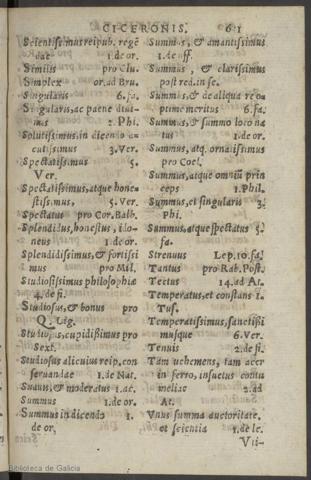 CICERONIS. 61
Scientissimus reipub. regē
dae 1. de or.
Similis pro Clu.
Simplex or. ad Bru.
Singularis 6. fa.
Singularis, ac paene diui-
nus 2. Phi.
Solutissimus, in dicendo a-
cutissimus 3. Ver.
Spectatissimus 5.
Ver.
Spectatissimus, atque hone-
stissimus, 5. Ver.
Spectatus pro Cor. Balb.
Splendidus, honestus, ido-
neus 1. de or.
Splendidissimus, & fortissi
mus pro Mil.
Studiosissimus philosophiæ
4. de fi.
Studiosus, & bonus pro
Q. Lig.
Studiosus, cupidissimus pro
Sext.
Studiosus alicuius reip. con
seruandae 1. de Nat.
Suauis, & moderatus 1. ac.
Summus 1. de or.
Summus in dicendo 1.
de or,
Summus, & amantissimus
1. de off.
Summus, & clarissimus
post red. in se.
Summus, & de aliqua re o-
ptime meritus 6. fa.
Summus, & summo loco na
tus 1. de or.
Summus, atq. ornatissimus
pro Coel.
Summus, atque omniū prin
ceps 1. Phil.
Summus, et singularis 3.
Phi.
Summus, atque spectatus 5.
fa.
Strenuus Lep. 10. fa.
Tantus pro Rab. Post.
Tectus 14. ad At.
Temperatus, et constans 1.
Tus.
Temperatissimus, sanctissi
musque 6. Ver.
Tenuis 2. de fi.
Tam uehemens, tam acer
in ferro, insuetus contu
meliae 2. ad
At.
Vnus summa auctoritate,
et scientia 1. de le.
Vti-
Biblioteca de Galicia